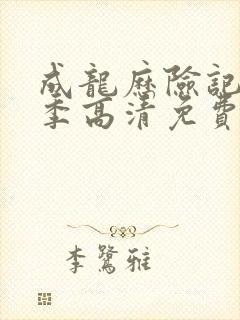 成龍歷險記
季高清免費
李鷺雅